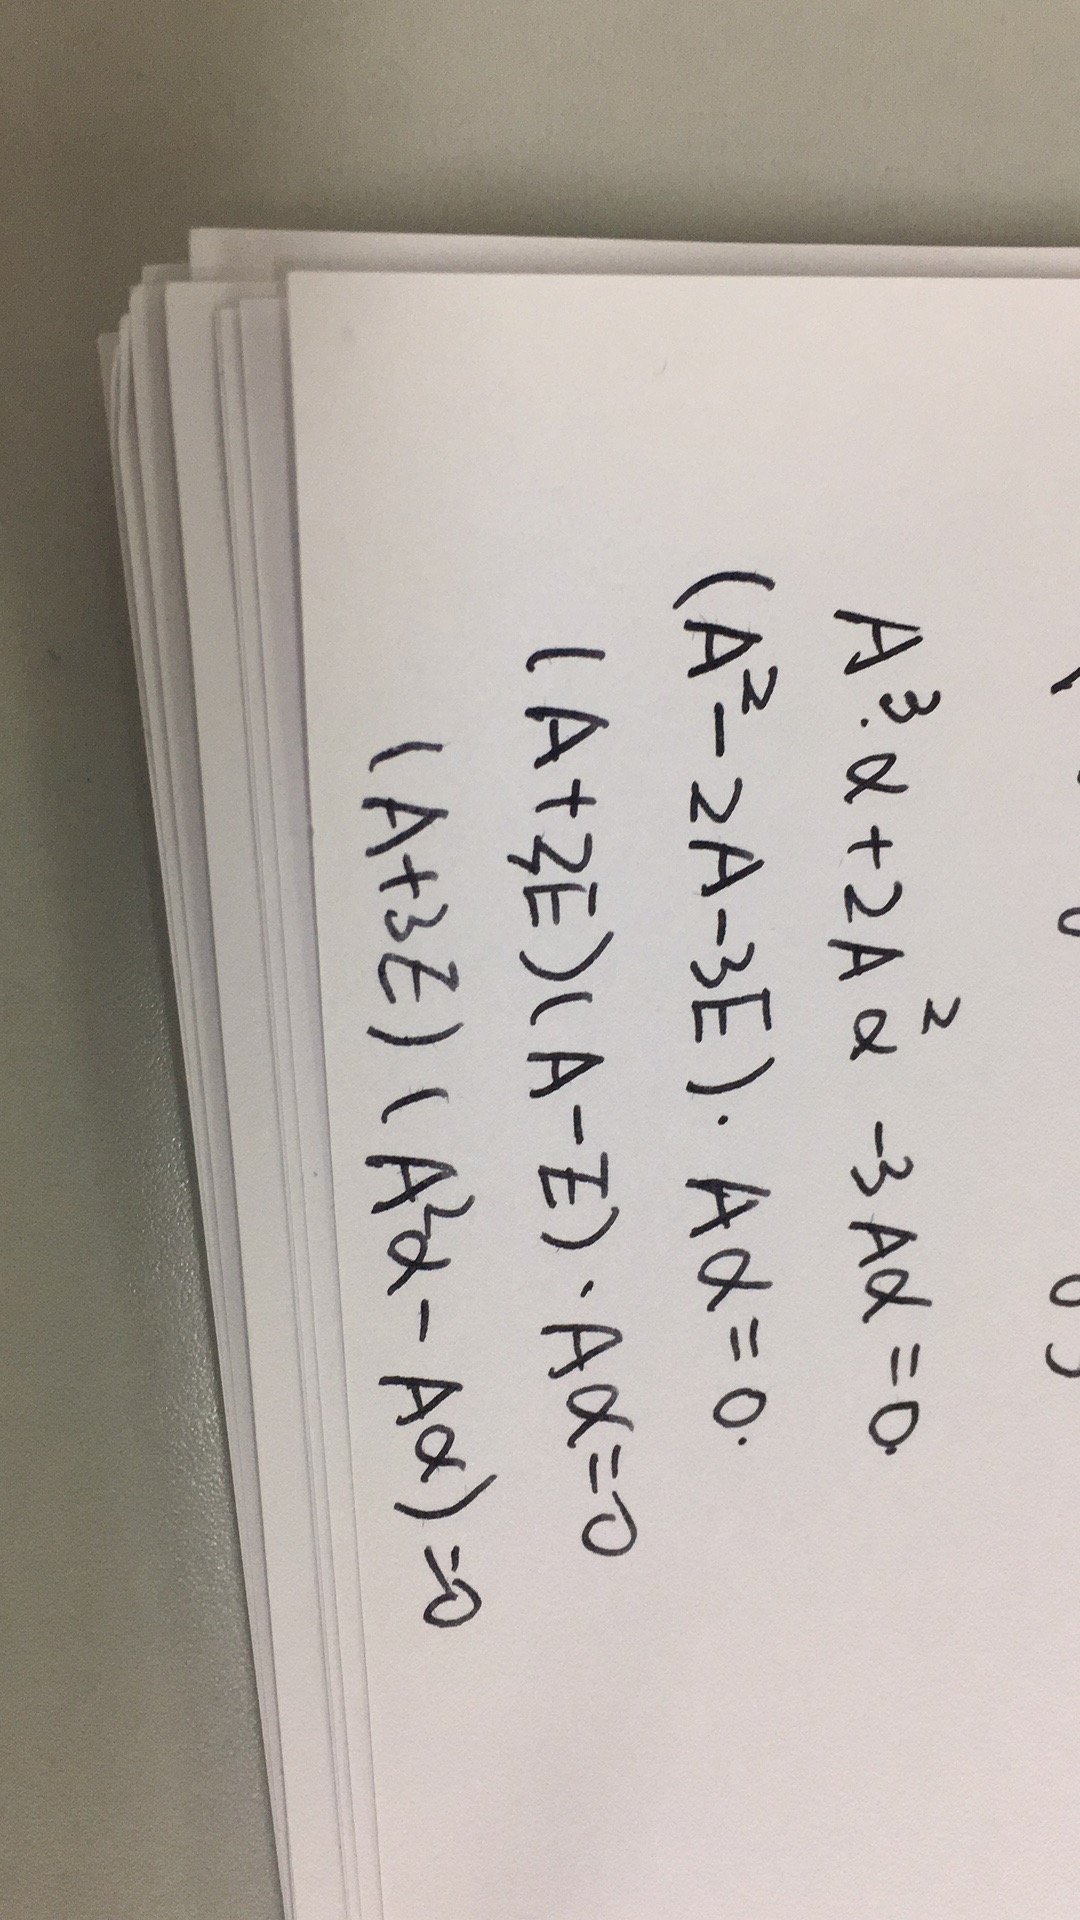 A³·α+2A²α-3Aα=0
(A²-2A-3E)·Aα=0.
(A+3E)(A-E)·Aα=0
(A+3E)(A²α-Aα)=0